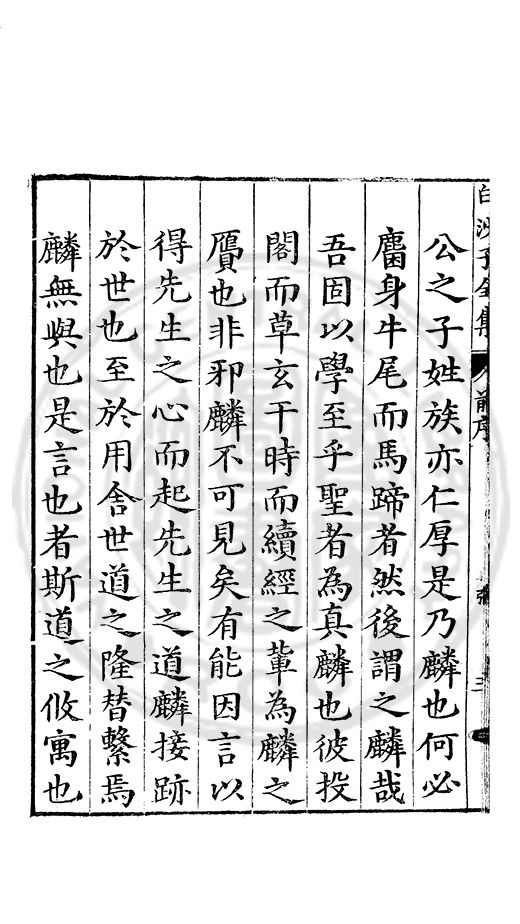 白沙子全集 前序 三
公之子姓族亦仁厚是乃麟也何必
麕身牛尾而馬蹄者然後謂之麟哉
吾固以學至乎聖者為真麟也彼投
閣而草玄干時而續經之軰為麟之
贗也非邪麟不可見矣有能因言以
得先生之心而起先生之道麟接跡
於世也至於用舎世道之隆替繫焉
麟無與也是言也者斯道之攸寓也